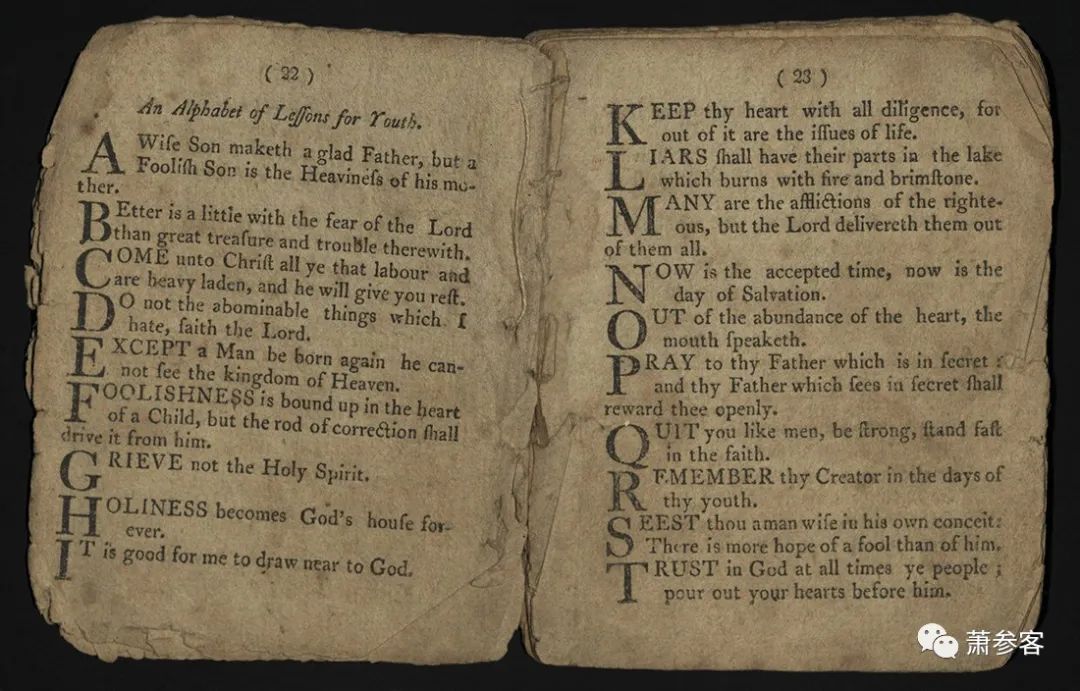 ( 22 )
An Alphabet of Leſſons for Youth.
A Wiſe Son maketh a glad Father, but a
Fooliſh Son is the Heavineſs of his mo-
ther.
BEtter is a little with the fear of the Lord
than great treaſure and trouble therewith.
COME unto Chriſt all ye that labour and
are heavy laden, and he will give you reſt.
DO not the abominable things which I
hate, ſaith the Lord.
EXCEPT a Man be born again he can-
not ſee the kingdom of Heaven.
FOOLISHNESS is bound up in the heart
of a Child, but the rod of correction ſhall
drive it from him.
GRIEVE not the Holy Spirit.
HOLINESS becomes God's houſe for-
ever.
IT is good for me to draw near to God.
( 23 )
KEEP thy heart with all diligence, for
out of it are the iſſues of life.
LIARS ſhall have their parts in the lake
which burns with fire and brimſtone.
MANY are the afflictions of the righte-
ous, but the Lord delivereth them out
of them all.
NOW is the accepted time, now is the
day of Salvation.
OUT of the abundance of the heart, the
mouth ſpeaketh.
PRAY to thy Father which is in ſecret :
and thy Father which ſees in ſecret ſhall
reward thee openly.
QUIT you like men, be ſtrong, ſtand faſt
in the faith.
REMEMBER thy Creator in the days of
thy youth.
SEEST thou a man wiſe in his own conceit:
There is more hope of a fool than of him.
TRUST in God at all times ye people ;
pour out your hearts before him.
萧参客